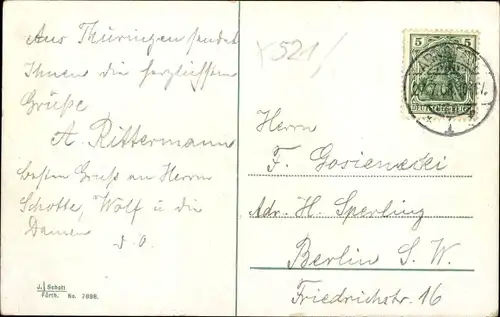 Aus Thüringen sendet
Ihnen die herzlichsten
Grüße
A. Rittermann
besten Gruss an Herrn
Schotte, Wolf u die
Damen
d. O.
J. Schott
Fürth. No. 7098.
X521/
5 5
DEUTSCHES REICH
Herrn
F. Gosienecki
Adr. H. Sperling
Berlin S. W.
Friedrichstr. 16